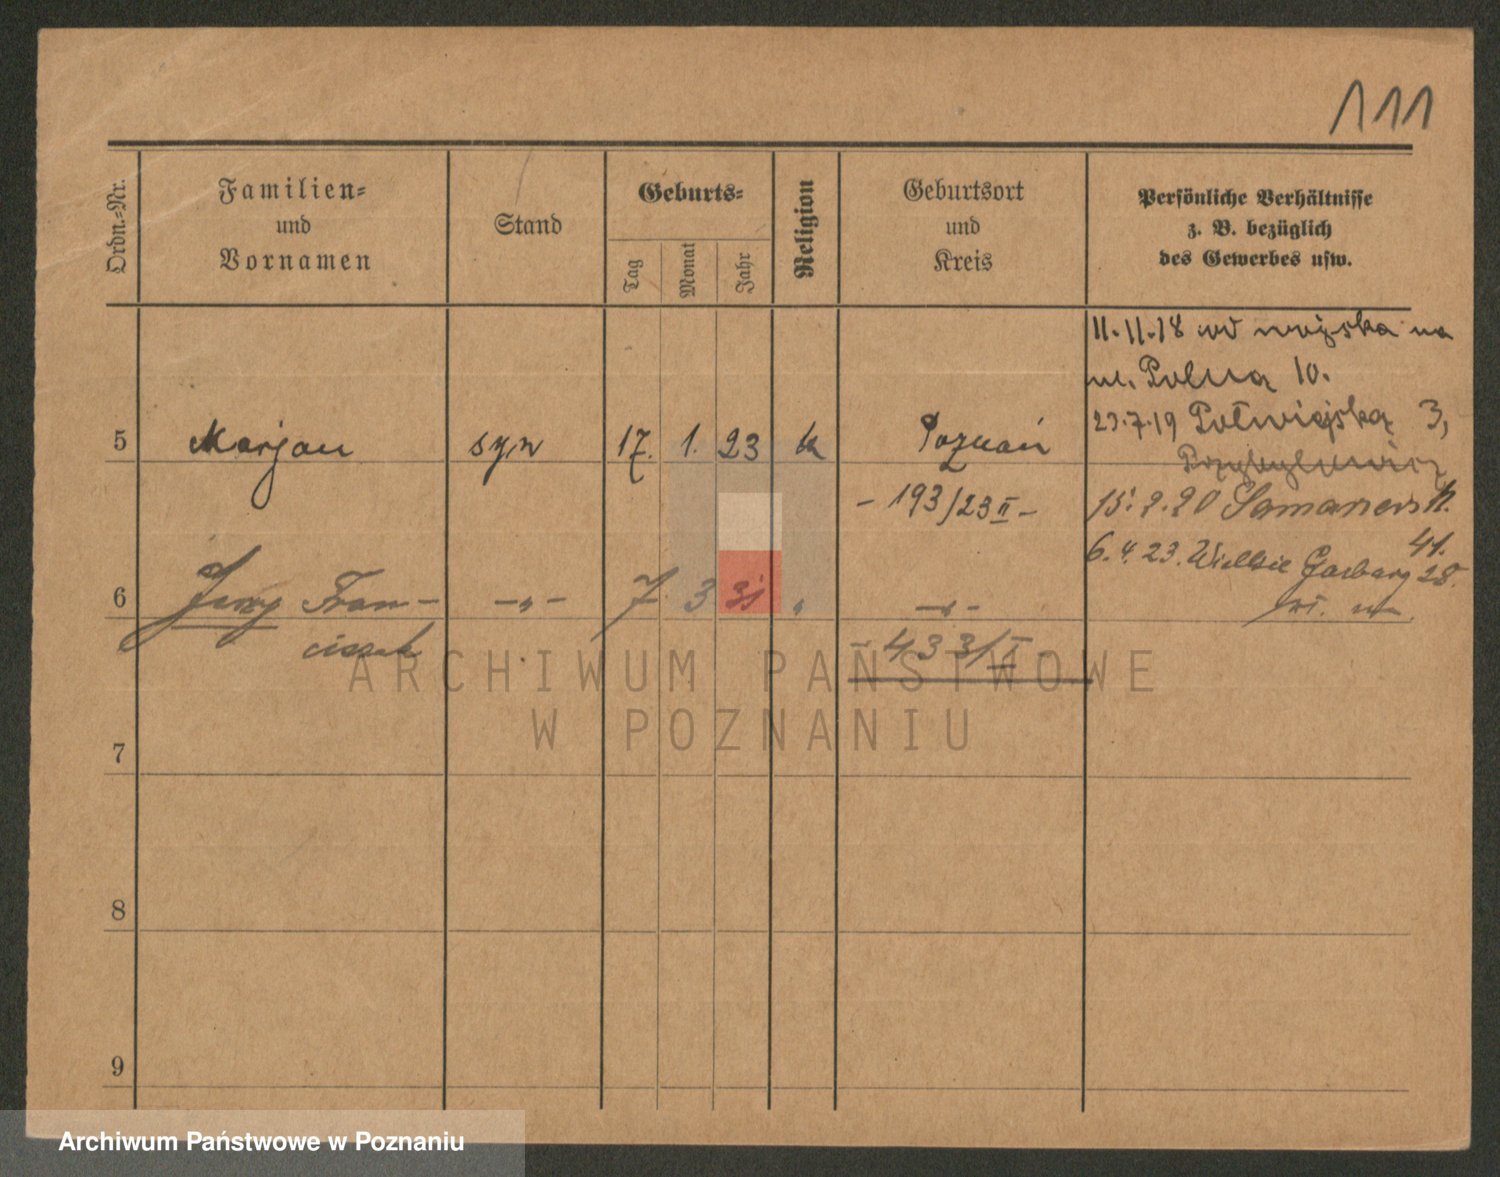 111
Ordn.=Nr.
Familien=
und
Vornamen
Stand
Geburts=
Tag
Monat
Jahr
Religion
Geburtsort
und
Kreis
Persönliche Verhältnisse
z. B. bezüglich
des Gewerbes usw.
11.11.18 od wojska na
ul. Polna 10.
23.7.19 Półwiejska 3,
5 Marjan syn 17. 1. 23 k Poznań
- 193/23 II -
15.2.20
41.
6.4.23. Wielkie Garbary 28.
6 Jerzy Fran- -"- 7 3 31 " -"-
ciszek
- 433/I -
7
8
9
ARCHIWUM PAŃSTWOWE
W POZNANIU
Archiwum Państwowe w Poznaniu